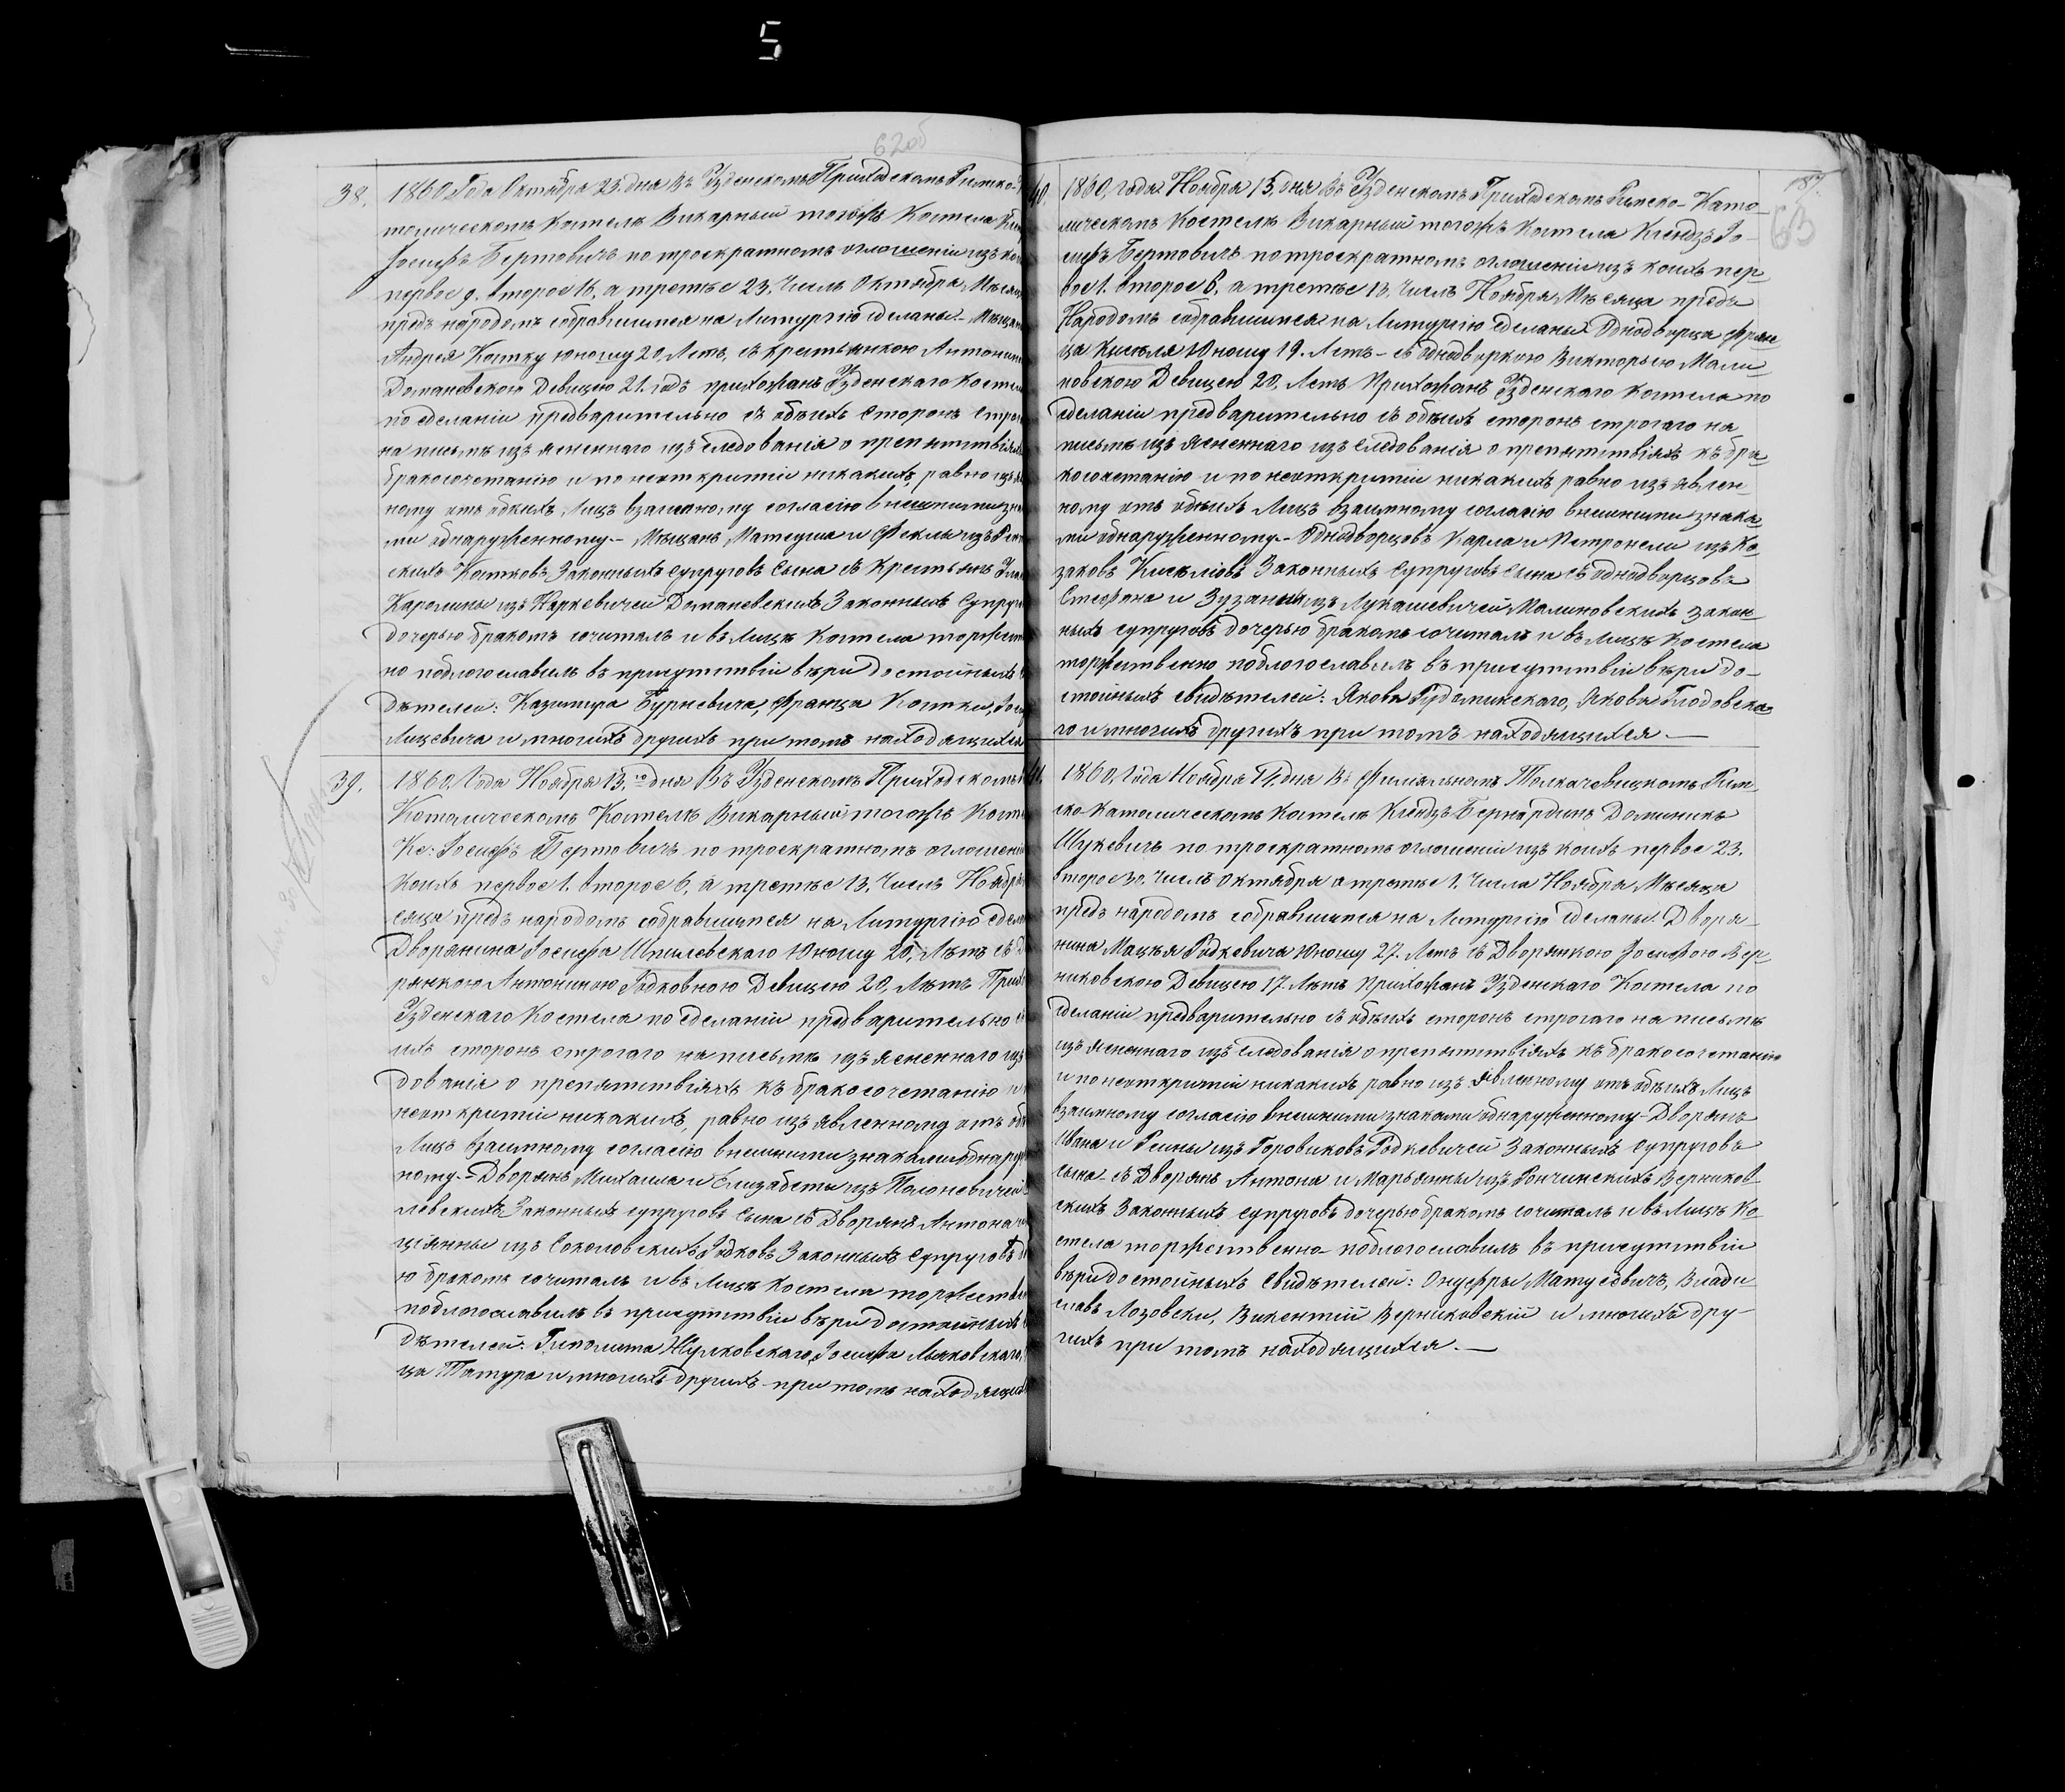 5
62об
38. 1860 Года Октября 23. дня Въ Узденскомъ Приходскомъ Римско-
толическомъ Костелѣ Викарный тогожъ Костела
Іосифъ Бертовичъ по троекратномъ оглошеніи изъ
первое 9. второе 16. а третье 23. Числъ Октября
предъ народомъ собравшимся на Литургію сделаны. -
Андрея Костку юношу 20 Летъ, съ крестьянкою
Домановскою Девицею 21. годъ прихожанъ Узденскаго
по сделаніи предварительно съ обѣихъ сторонъ
на письмѣ изъясненнаго изъследованія о препятствіяхъ
бракосочетанію и по неоткритіи никакихъ, равно
ному отъ обѣихъ Лицъ взаимному согласію внешними
ми обнаруженному. - Мѣщанъ Матеуша и Феклы изъ
скихъ Костковъ Законныхъ супруговъ Сына съ Крестьянъ
Каролины изъ Каркевичей Домановскихъ Законныхъ
дочерью бракомъ сочиталъ и въ Лицѣ Костела
но поблогославилъ въ присутствіи вѣри достойныхъ
дѣтелей: Казимира Бурневича, Франца Костки,
Лицевича и многихъ другихъ при томъ находящихся
39. 1860. Года Ноября 13.го дня Въ Узденскомъ Приходскомъ
Католическомъ Костелѣ Викарный тогожъ
Кс: Іосифъ Бертовичъ по троекратномъ
коихъ первое 1. второе 6. а третье 13. Числъ
сяца предъ народомъ собравшимся на Литургію
Дворянина Іосифа Шпилевскаго Юношу 25, Лѣтъ съ
рянкою Антониною Годковною Девицею 20, Лѣтъ
Узденскаго Костела по сделаніи предварительно
ихъ сторонъ строгаго на письмѣ изъясненнаго
дованія о препятствіяхъ къ бракосочетанію и
неоткритіи никакихъ, равно изъявленному отъ
Лицъ взаимному согласію внешними знаками
ному. - Дворянъ Михаила и Елизабеты изъ
левскихъ Законныхъ супруговъ Сына съ Дворянъ Антона
ціянны изъ Соколовскихъ Годковъ Законныхъ Супруговъ
ю бракомъ сочиталъ и въ Лицѣ Костела
поблогославилъ въ присутствіи вѣри достойныхъ
дѣтелей: Гиполита Жулковскаго, Іосифа Лыковскаго,
ца Татура и многихъ другихъ при томъ
63
40. 1860, года Ноября 13, дня Въ Узденскомъ Приходскомъ Римско-Като-
лическомъ Костелѣ Викарный тогожъ Костела Ксендзъ Іо-
сифъ Бертовичъ по троекратномъ оглошеніи изъ коихъ пер-
вое 1. второе 6, а третье 13, Числъ Ноября Мѣсяца предъ
Народомъ собравшимся на Литургію сделаны. Однодворца
Киселя Юношу 19. Летъ - съ однодворкою Викторыею Мали-
новскою Девицею 20. Летъ Прихожанъ Узденскаго Костела по
сделаніи предварительно съ обѣихъ сторонъ строгаго на
письмѣ изъясненнаго изъследованія о препятствіяхъ къ бра-
косочетанію и по неоткритіи никакихъ равно изъявлен-
ному отъ обѣихъ Лицъ взаимному согласію внешними знака-
ми обнаруженному. - Однодворцовъ Карла и Петронели изъ Ко-
заковъ Киселіовъ Законныхъ Супруговъ Сына съ однодворцовъ
Стефана и Зузанны изъ Лукашевичей Малиновскихъ закон-
ныхъ супруговъ дочерью бракомъ сочиталъ и въ лицѣ Костела
торжественно поблогославилъ въ присутствіи вѣри до-
стойныхъ свидѣтелей: Якова Гудоминскаго, Якова
го и многихъ другихъ при томъ находящихся. —
1860. Года Ноября дня Въ Филіяльномъ Толкачевицкомъ Рим-
ско-Католическомъ Костелѣ Ксендзъ Бернардинъ Доминикъ
Шукевичъ по троекратномъ оглошеніи изъ коихъ первое 23.
второе 30. Числъ Октября а третье 1. Числа Ноября Мѣсяца
предъ народомъ собравшимся на Литургію сделаны. Дворя-
нина Мацѣя Родкевича Юношу 27. Летъ съ Дворянкою Іосифою Вер-
никовскою Девицею 17. Лѣтъ Прихожанъ Узденскаго Костела по
сделаніи предварительно съ обѣихъ сторонъ строгаго на письмѣ
изъясненнаго изъследованія о препятствіяхъ къ бракосочетанію
и по неоткритіи никакихъ равно изъявленному отъ обѣихъ Лицъ
взаимному согласію внешними знаками обнаруженному - Дворянъ
Ивана и изъ Горовиковъ Родкевичей Законныхъ Супруговъ
сына - съ Дворянъ Антона и Марьянны изъ Рончинскихъ Верников-
скихъ Законныхъ супруговъ дочерью бракомъ сочиталъ и въ Лицѣ Ко-
стела торжественно - поблогославилъ въ присутствіи
вѣри достойныхъ Свидѣтелей: Онуфры Матусевичъ, Влади-
славъ Лозовски, Викентій Верниковскій и многихъ дру-
гихъ при томъ находящихся. —